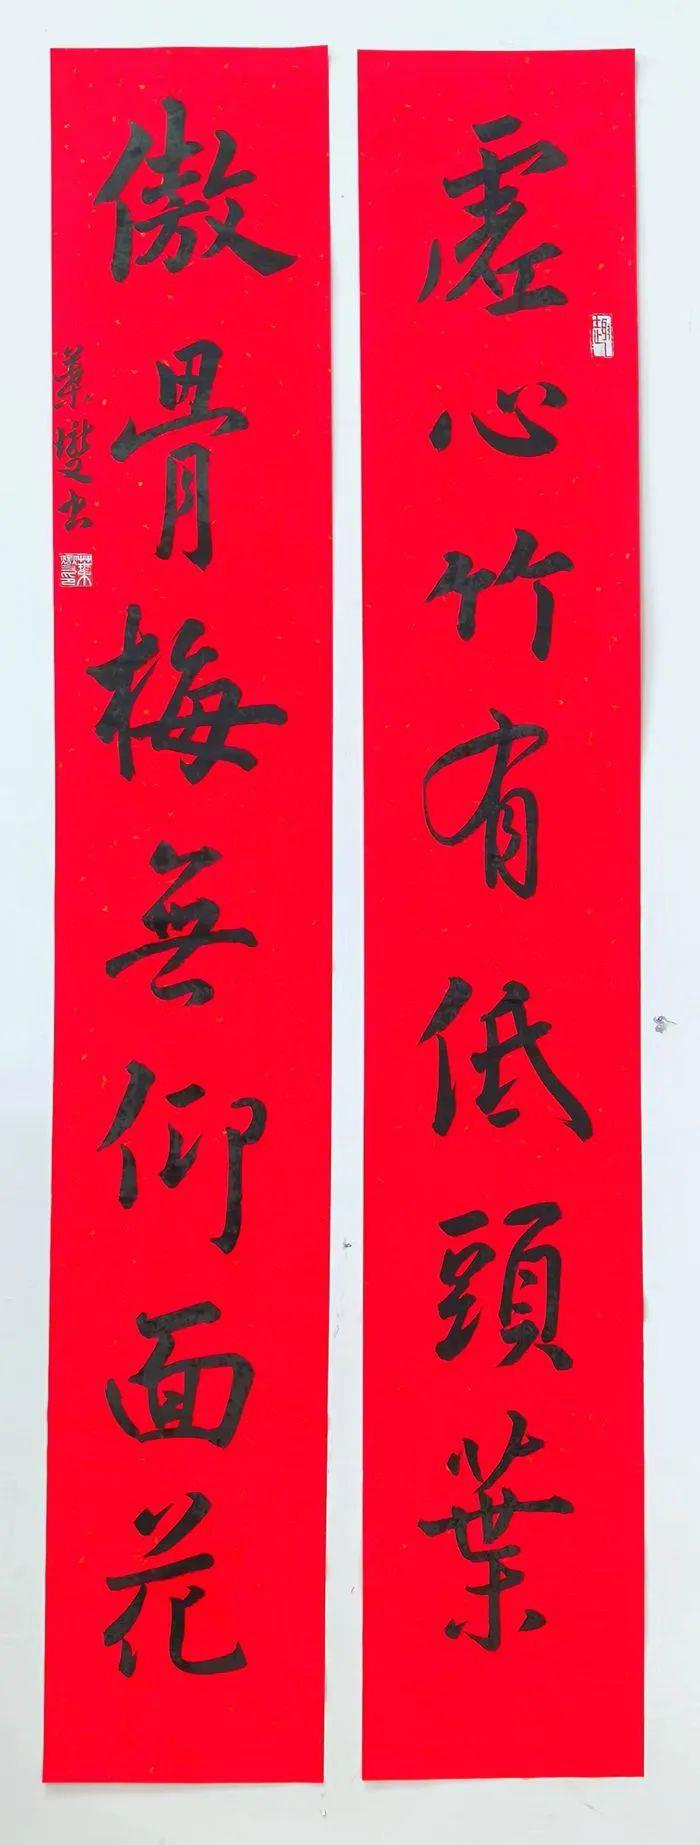 虛心竹有低頭葉
傲骨梅無仰面花
葉燮书